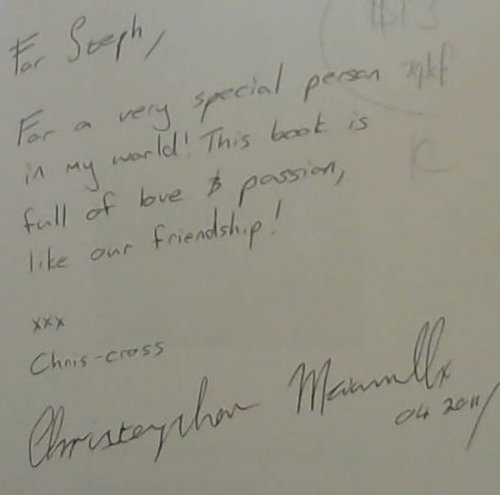 For Steph,
For a very special person
in my world! This book is
full of love & passion,
like our friendship!
xxx
Chris-cross
Christopher
04 2011